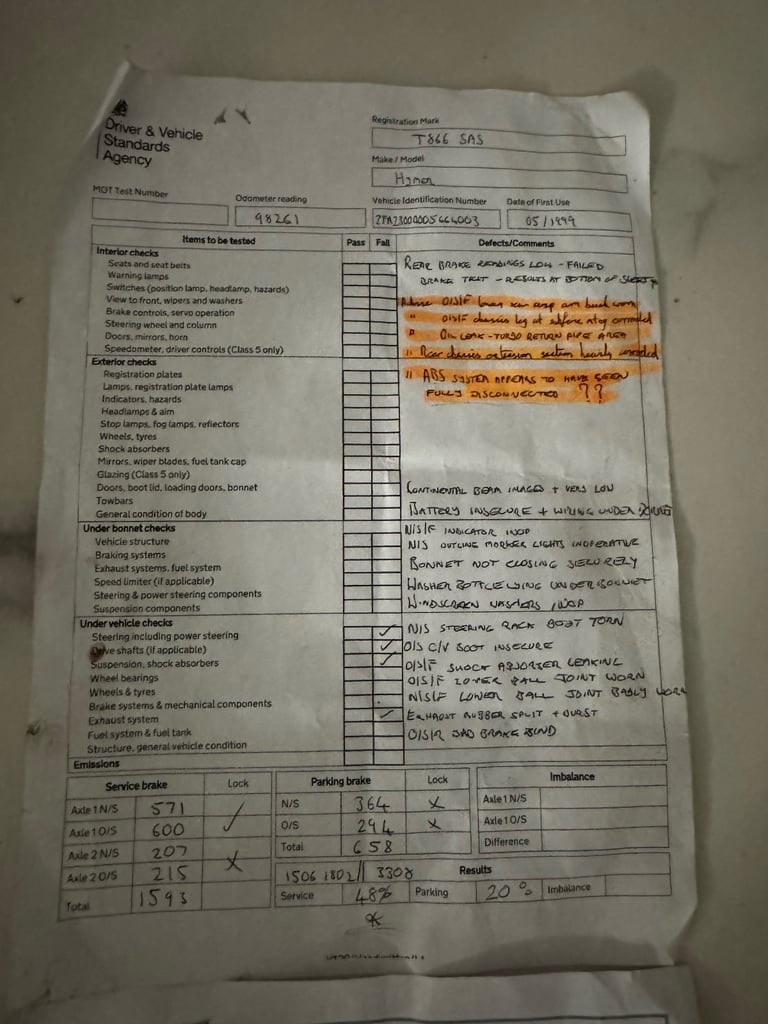 Driver & Vehicle
Standards
Agency
Registration Mark
T866 SAS
Make / Model
Hymer
MOT Test Number
Odometer reading
98261
Vehicle Identification Number
ZFA23000005664063
Date of First Use
05/1999
Items to be tested
Pass
Fail
Defects/Comments
Interior checks
Seats and seat belts
Warning lamps
Switches (position lamp, headlamp, hazards)
View to front, wipers and washers
Brake controls, servo operation
Steering wheel and column
Doors, mirrors, horn
Speedometer, driver controls (Class 5 only)
REAR BRAKE READINGS LOW - FAILED
BRAKE TEST - RESULTS AT BOTTOM OF SHEET
Advise O/S/F lower arm worn
" O/S/F chassis leg at corroded
" OIL LEAK - TURBO RETURN PIPE AREA
" Rear chassis extension section heavily corroded
Exterior checks
Registration plates
Lamps, registration plate lamps
Indicators, hazards
Headlamps & aim
Stop lamps, fog lamps, reflectors
Wheels, tyres
Shock absorbers
Mirrors, wiper blades, fuel tank cap
Glazing (Class 5 only)
Doors, boot lid, loading doors, bonnet
Towbars
General condition of body
" ABS SYSTEM APPEARS TO HAVE BEEN
FULLY DISCONNECTED ??
CONTINENTAL BEAM IMAGES + VERY LOW
BATTERY INSECURE + WIRING UNDER BONNET
Under bonnet checks
Vehicle structure
Braking systems
Exhaust systems, fuel system
Speed limiter (if applicable)
Steering & power steering components
Suspension components
N/S/F INDICATOR INOP
N/S OUTLINE MARKER LIGHTS INOPERATIVE
BONNET NOT CLOSING SECURELY
WASHER BOTTLE UNDER BONNET
WINDSCREEN WASHERS INOP
Under vehicle checks
Steering including power steering
Drive shafts (if applicable)
Suspension, shock absorbers
Wheel bearings
Wheels & tyres
Brake systems & mechanical components
Exhaust system
Fuel system & fuel tank
Structure, general vehicle condition
N/S STEERING RACK BOOT TORN
O/S C/V BOOT INSECURE
O/S/F SHOCK ABSORBER LEAKING
O/S/F LOWER BALL JOINT WORN
N/S/F LOWER BALL JOINT BADLY WORN
EXHAUST RUBBER SPLIT + BURST
O/S/R BRAKE
Emissions
Service brake
Lock
Axle 1 N/S 571
Axle 1 O/S 600
Axle 2 N/S 207
Axle 2 O/S 215
Total 1593
Parking brake
Lock
N/S 364 x
O/S 294 x
Total 658
Imbalance
Axle 1 N/S
Axle 1 O/S
Difference
1506 1802// 3308
Results
Service 48%
Parking 20%
Imbalance